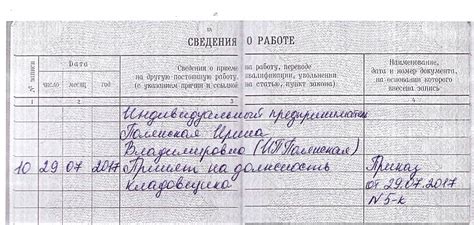 СВЕДЕНИЯ О РАБОТЕ
№ записи
Дата
число месяц год
Сведения о приеме на работу, переводе
на другую постоянную работу, квалификации, увольнении
(с указанием причин и ссылкой на статью, пункт закона)
Наименование,
дата и номер документа,
на основании которого
внесена запись
1 2 3 4
Индивидуальный предприниматель
Полянская Ирина
Владимировна (ИП Полянская)
10 29 07 2017 Принят на должность Приказ
кладовщика от 29.07.2017
N5-к